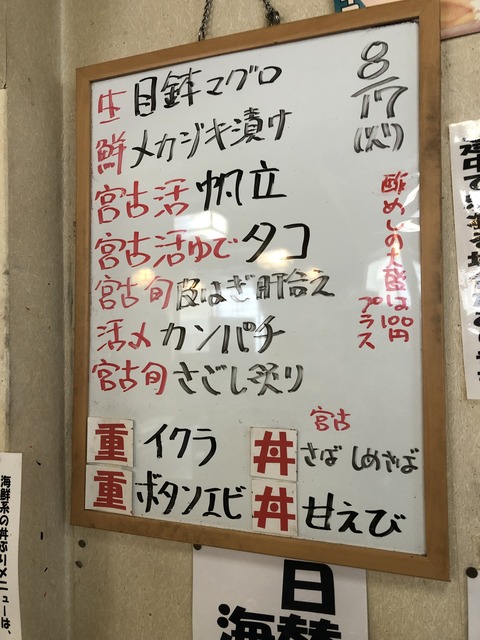 8/17
(火)
生 目鉢マグロ
鮮 メカジキ漬け
宮古活 帆立
宮古活ゆで タコ
宮古旬 皮はぎ肝合え
活〆 カンパチ
宮古旬 さごし炙り
酢めしの大盛は100円
プラス
重 イクラ
宮古
丼 さば しめさば
重 ボタンエビ
丼 甘えび
海鮮系の丼ぶりメニューは、
日替
海鮮